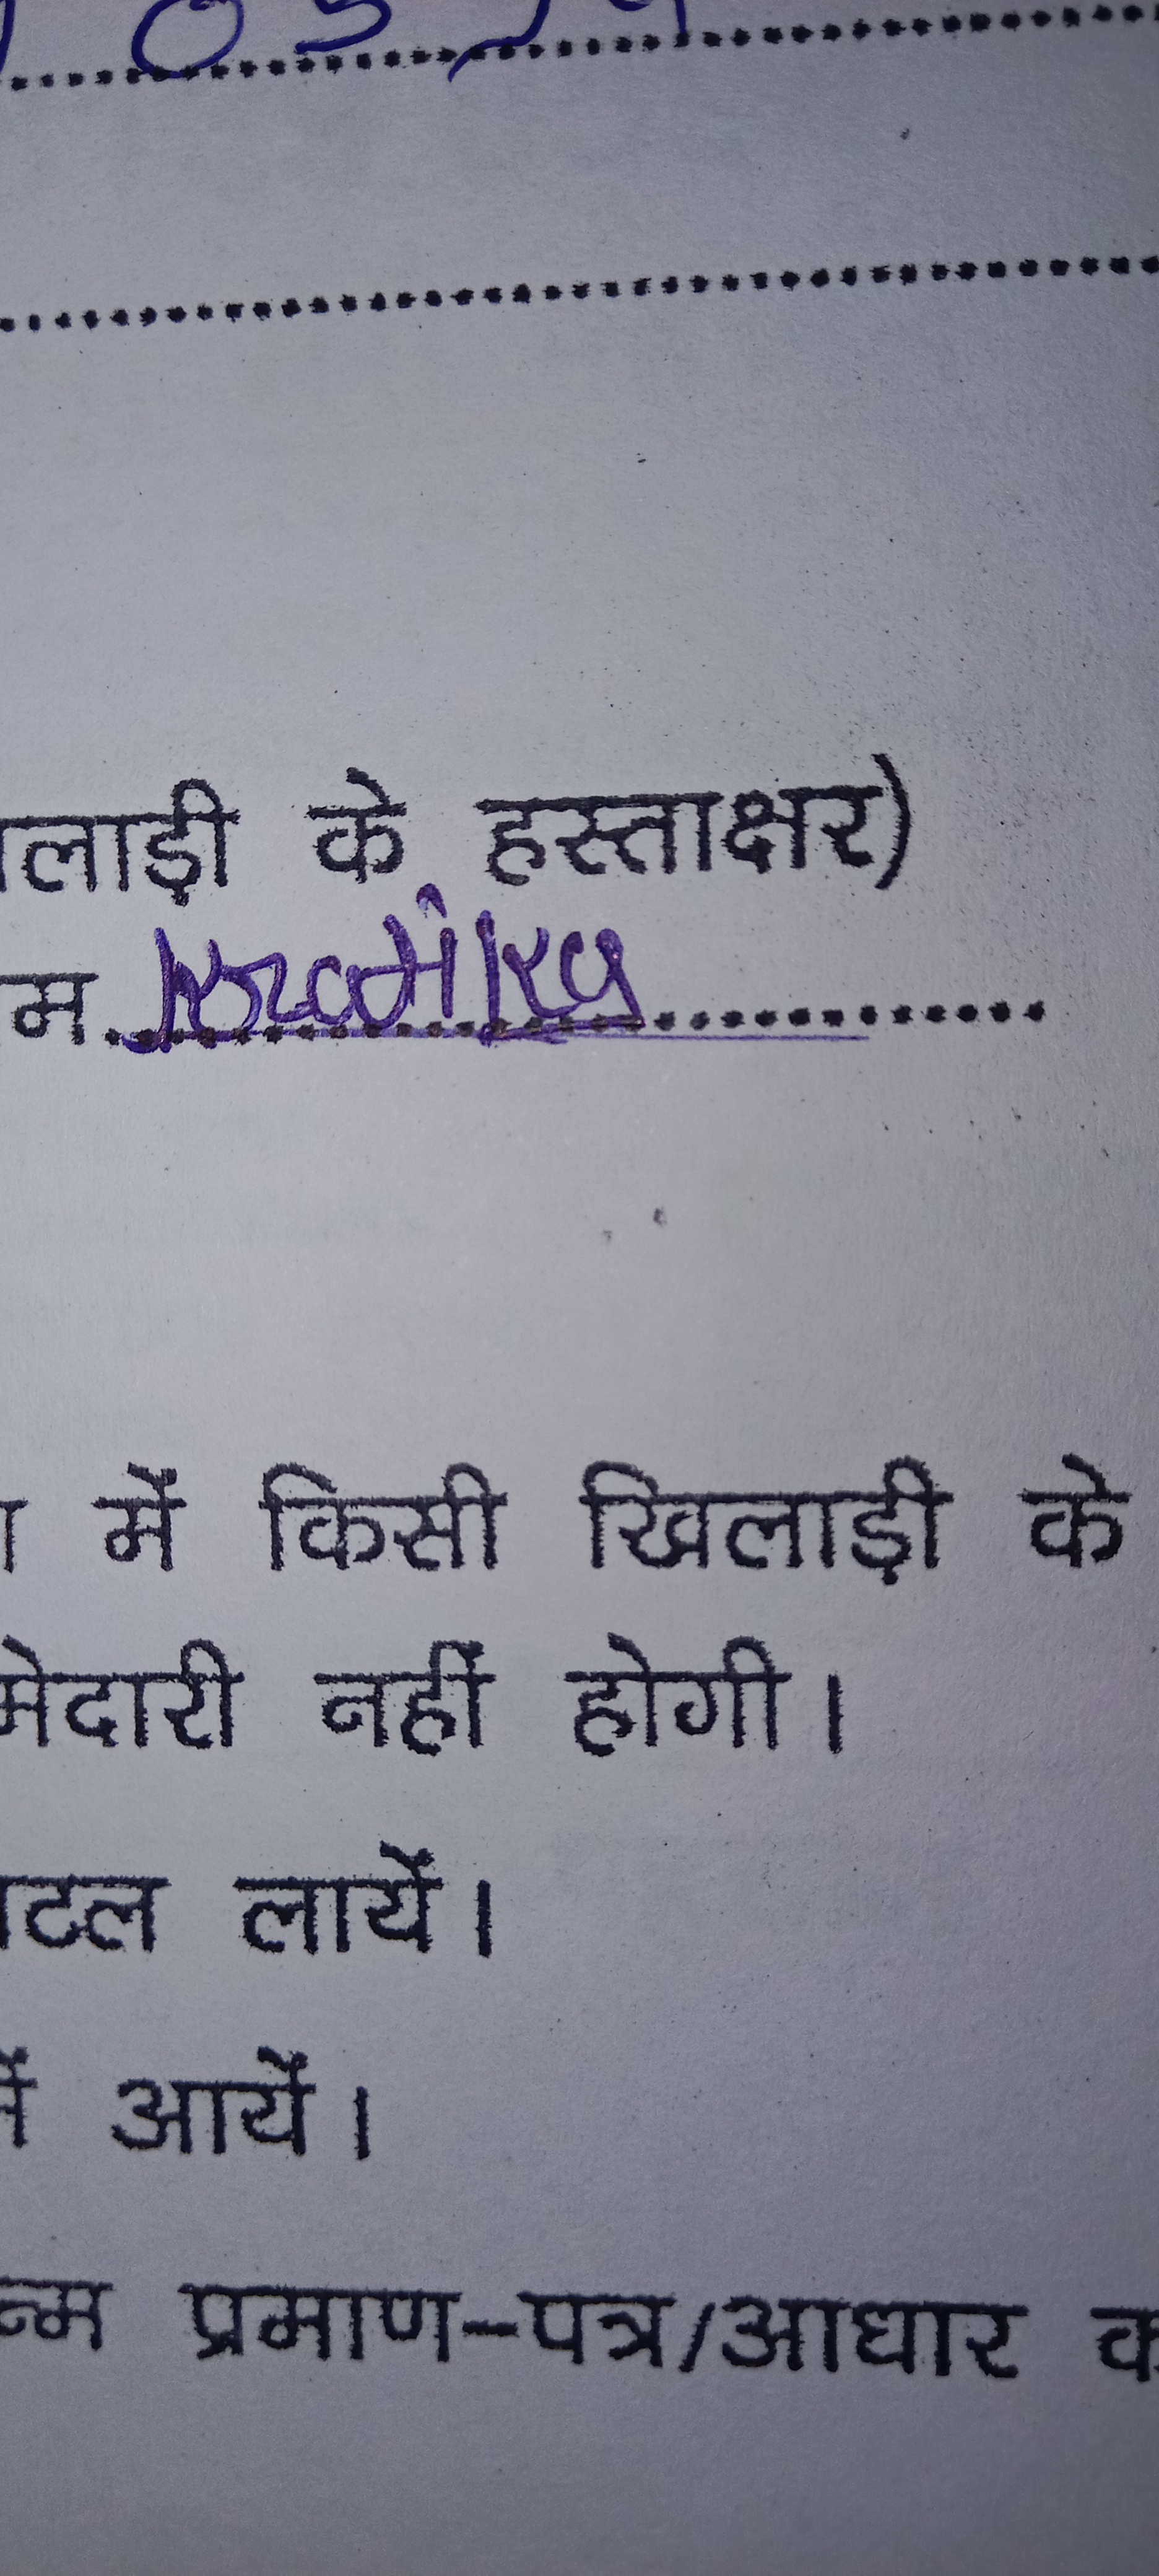 लाड़ी के हस्ताक्षर)
म
में किसी खिलाड़ी के
मेदारी नहीं होगी।
टल लायें।
में आयें।
न्म प्रमाण-पत्र/आधार क